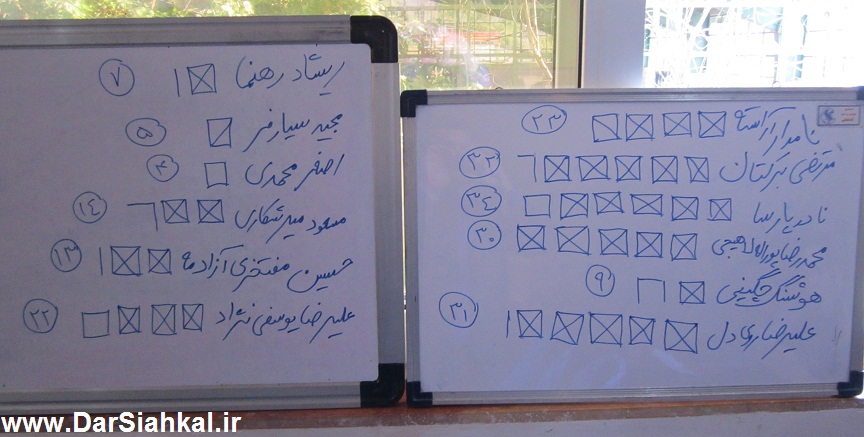 ریشاد رهنما ۷
مجید سیارفر ۵
اصغر محمدی ۴
مسعود میرشکاری ۱۴
حسین مفتخری آزاد ۱۳
علیرضا یوسفی نژاد ۲۲
نامدار آراسته ۲۳
مرتضی برکتان ۳۲
نادر پارسا ۳۴
محمدرضا پوراله لاهیجی ۳۰
هوشنگ چگینی ۹
علیرضا ری دل ۳۱
www.DarSiahkal.ir